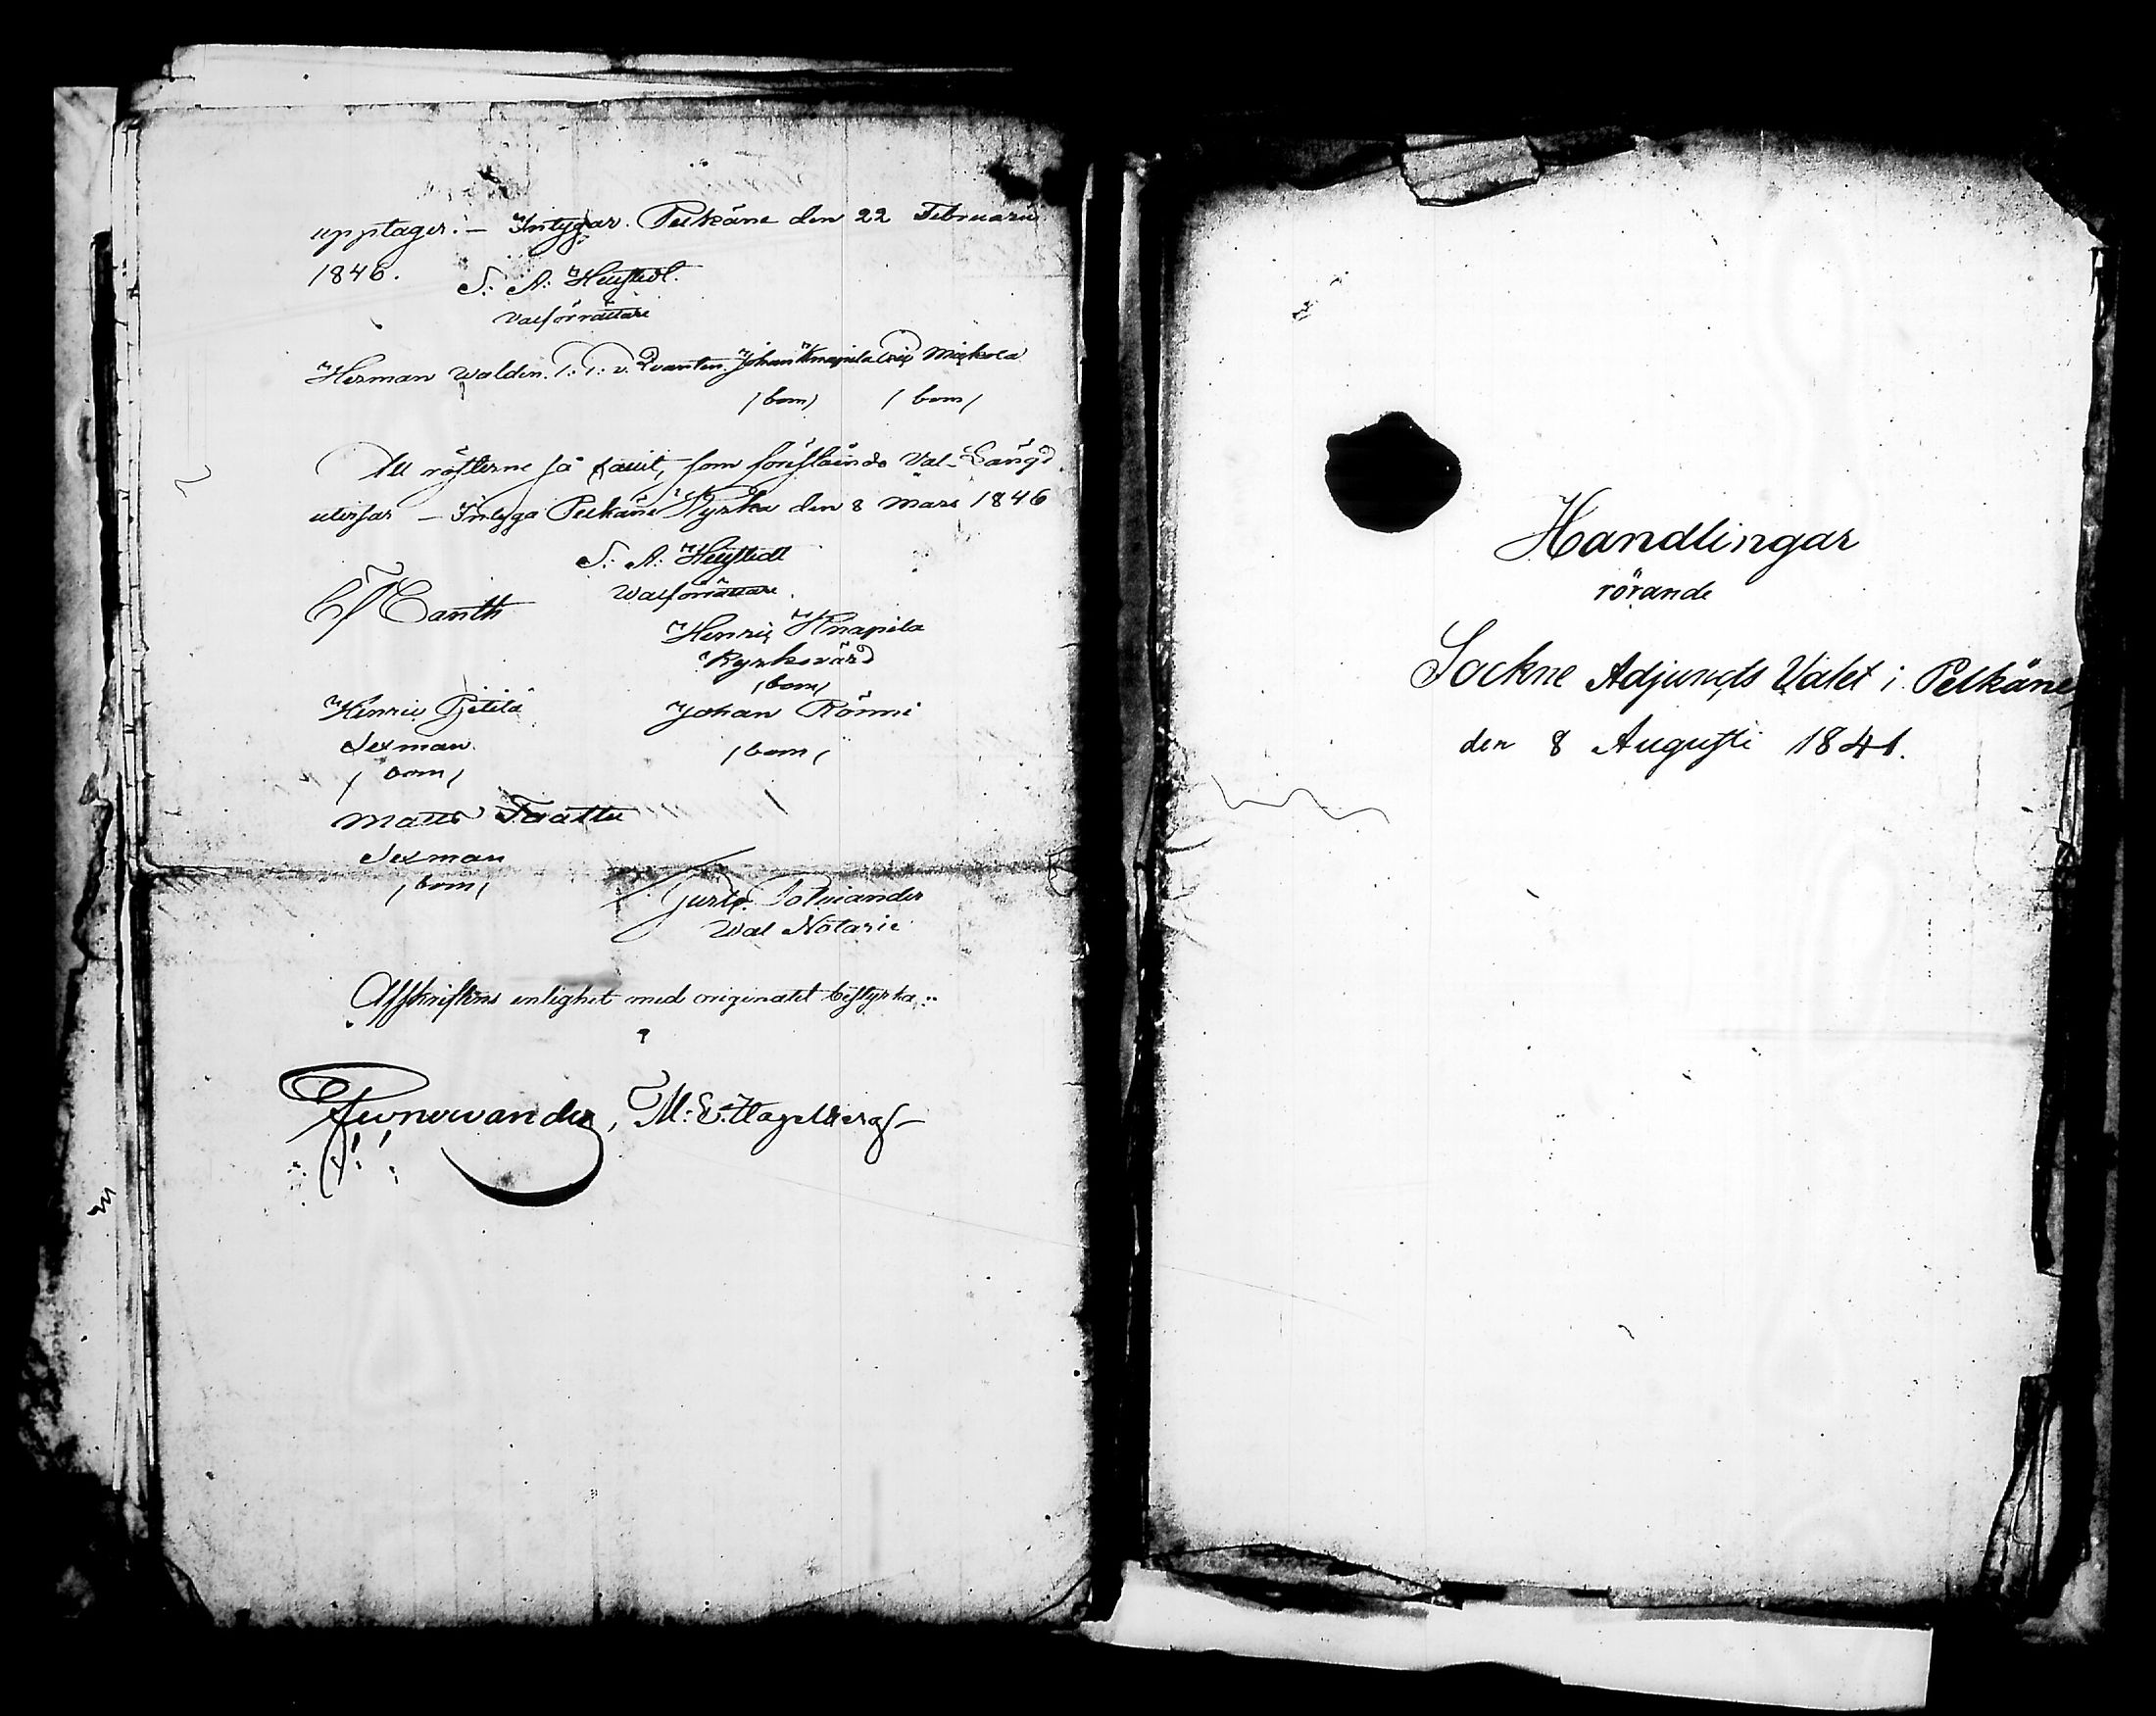 upptager. – Intygar. Pelkäne den 22 Februarii
1846. S: A: Heustedt.
Valförrättare
Herman Walden. T: T: v. Qvanten. Johan Knapila Eric Mickola
/bom/ /bom/
Att rösterne så fallit, som föreståénde Val-Längd
utvisar – Intyga Pelkäne Kyrka den 8 Mars 1846
S: A: Heustedt
Walförrättare.
Canth
Henric Knapila
Kyrkovärd
/bom/
Henric Pjetilä Johan Rönni
Sexman. /bom/
/bom/
Matts Taattu
Sexman
/bom/
Gust. Polviander
Wal Notarie
Afskriftens enlighet med originalet bestyrka:
M: E: Hagelberg
Handlingar
rörande
Sockne Adjuncts Valet i Pelkäne
den 8 Augusti 1841.